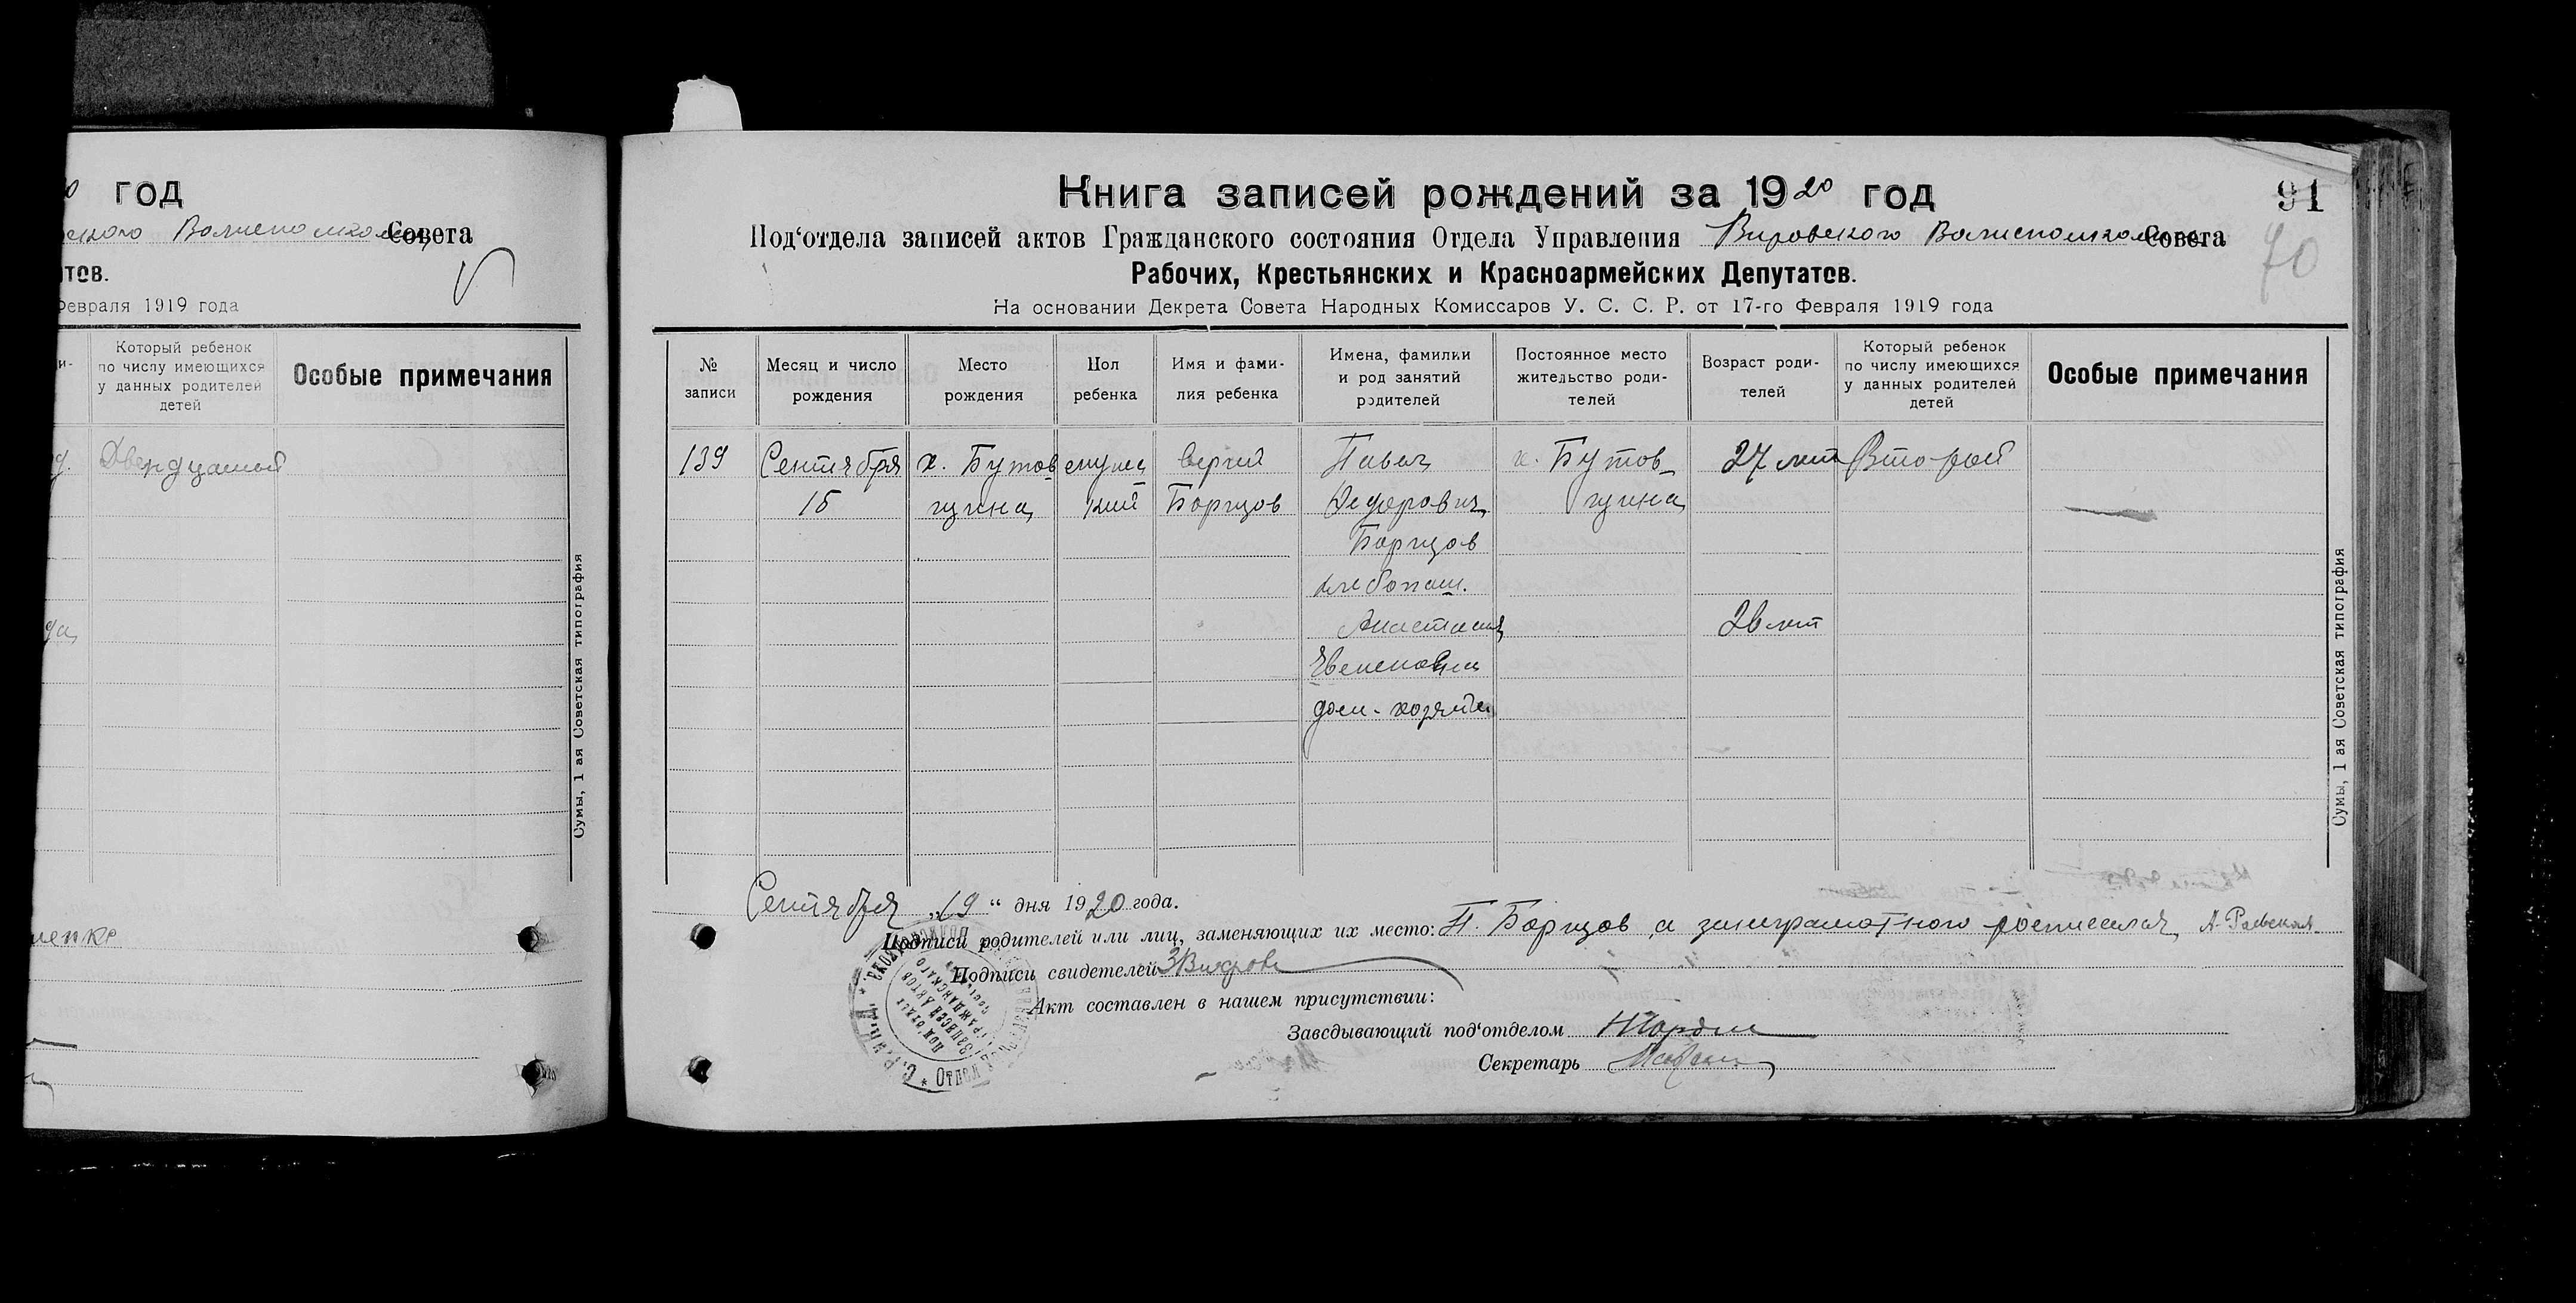 год
Волисполкома Совета
тов.
Февраля 1919 года
Который ребенок
по числу имеющихся
у данных родителей
детей
Особые примечания
Двенадцатый
Сумы, 1 ая Советская типография
Книга записей рождений за 1920 год
91
Под‘отдела записей актов Гражданского состояния Отдела Управления Вировского Волисполкома Совета
70
Рабочих, Крестьянских и Красноармейских Депутатов.
На основании Декрета Совета Народных Комиссаров У. С. С. Р. от 17-го Февраля 1919 года
№
записи
Месяц и число
рождения
Место
рождения
Пол
ребенка
Имя и фами-
лия ребенка
Имена, фамилии
и род занятий
родителей
Постоянное место
жительство роди-
телей
Возраст роди-
телей
Который ребенок
по числу имеющихся
у данных родителей
детей
Особые примечания
139
Сентября
15
х. Бутов
щина
мужс
кий
Сергий
Борщов
Павел
Федорович
Борщов
хлебопаш.
Анастасия
дом-хозяйка
х. Бутов-
щина
27 лет
26 лет
Второй
Сумы, 1 ая Советская типография
Сентября „19“ дня 1920 года.
Подписи родителей или лиц, заменяющих их место: П. Борщов а за неграмотного росписался А.
Подписи свидетелей
Акт составлен в нашем присутствии:
Заведывающий под‘отделом
Секретарь